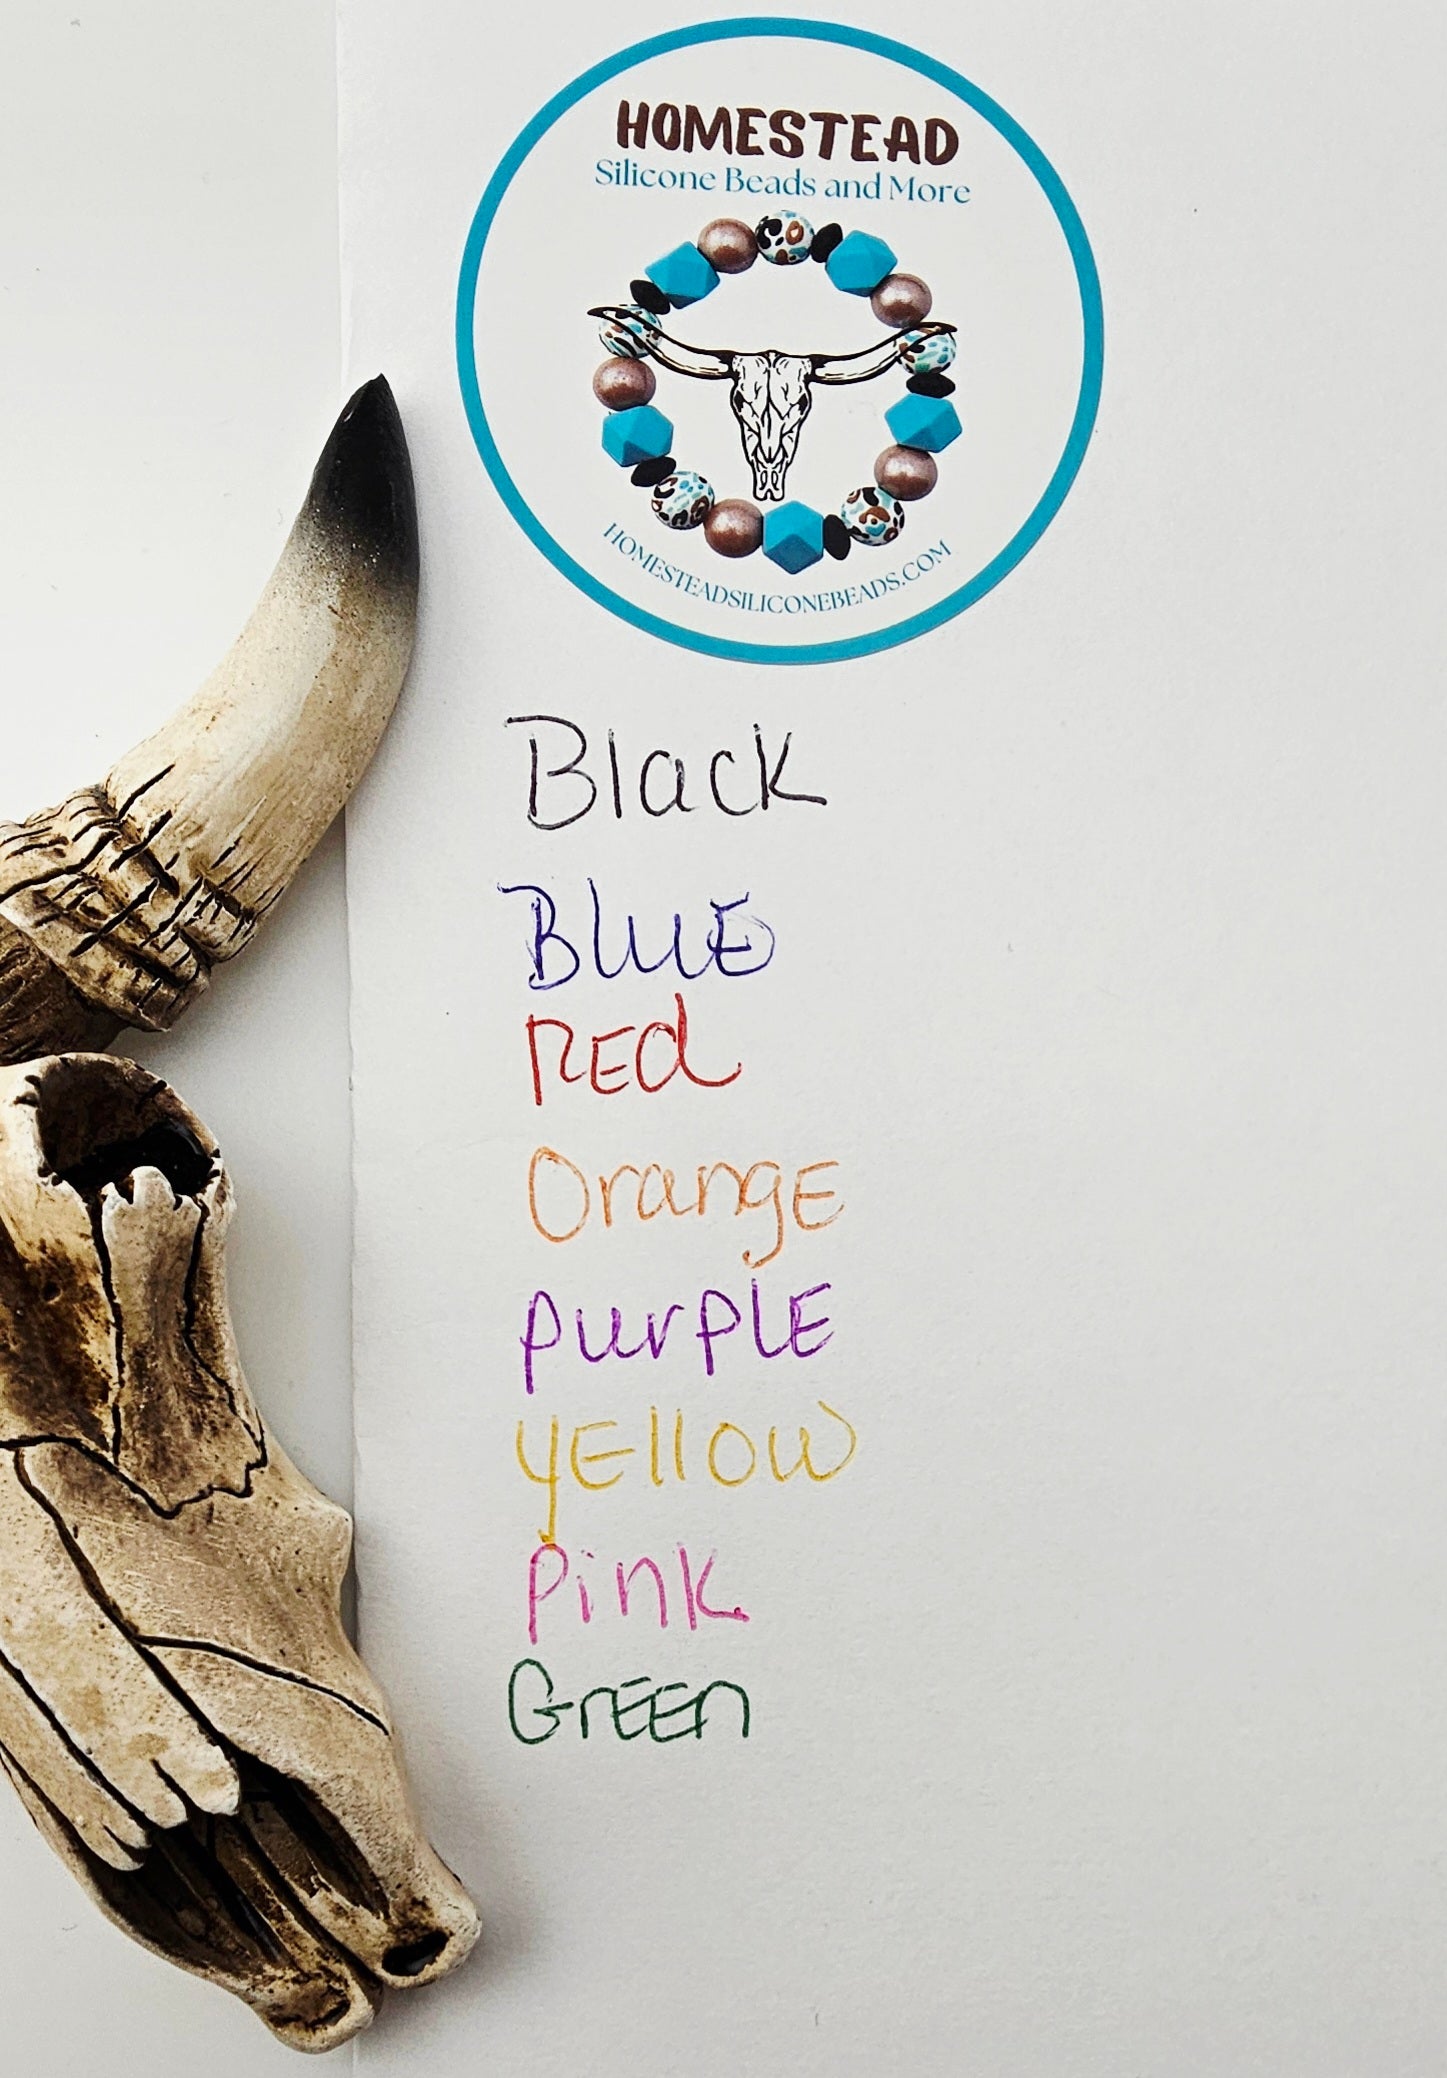 HOMESTEAD
Silicone Beads and More
HOMESTEADSILICONEBEADS.COM
Black
BluE
REd
OrangE
purplE
yEllow
pink
GrEEn